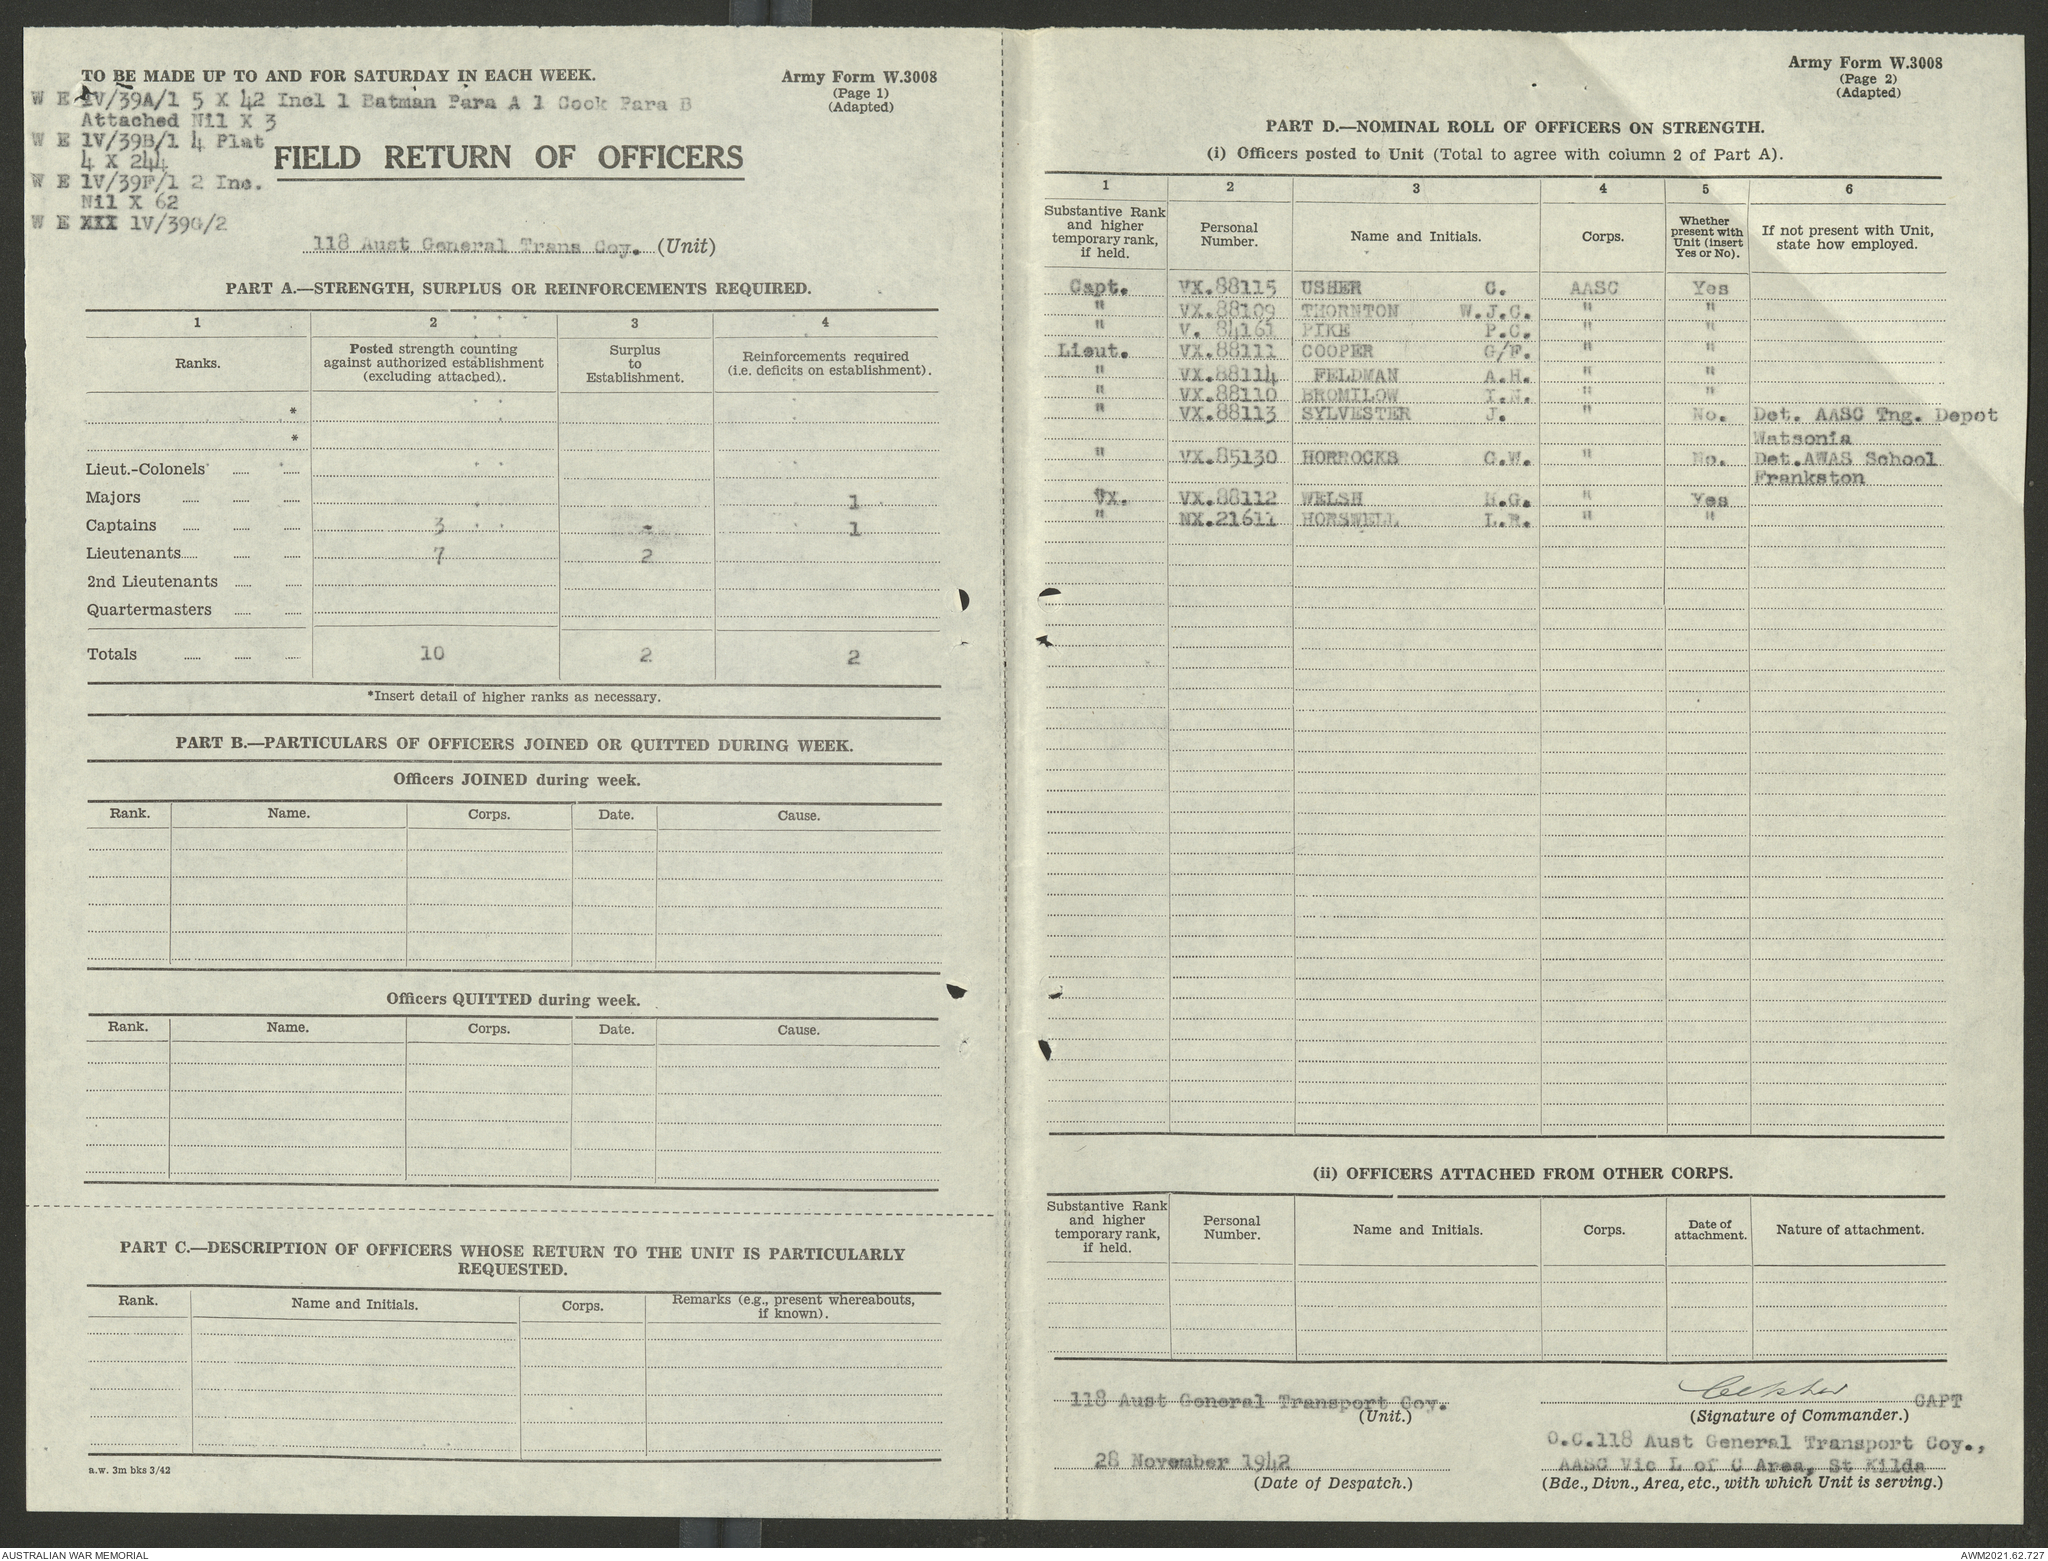 TO BE MADE UP TO AND FOR SATURDAY IN EACH WEEK.
Army Form W.3008
(Page 1)
(Adapted)
W E 1V/39A/1 5 X 42 Incl 1 Batman Para A 1 Cook Para B
Attached Nil X 3
W E 1V/39B/1 4 Plat
4 X 244
W E 1V/39F/1 2 Inc.
Nil X 62
W E XXX 1V/39G/2
FIELD RETURN OF OFFICERS
118 Aust General Trans Coy. (Unit)
PART A.—STRENGTH, SURPLUS OR REINFORCEMENTS REQUIRED.
1 2 3 4
Ranks. Posted strength counting against authorized establishment (excluding attached). Surplus to Establishment. Reinforcements required (i.e. deficits on establishment).
*
*
Lieut.-Colonels
Majors 1
Captains 3 - 1
Lieutenants 7 2
2nd Lieutenants
Quartermasters
Totals 10 2 2
*Insert detail of higher ranks as necessary.
PART B.—PARTICULARS OF OFFICERS JOINED OR QUITTED DURING WEEK.
Officers JOINED during week.
Rank. Name. Corps. Date. Cause.
Officers QUITTED during week.
Rank. Name. Corps. Date. Cause.
PART C.—DESCRIPTION OF OFFICERS WHOSE RETURN TO THE UNIT IS PARTICULARLY
REQUESTED.
Rank. Name and Initials. Corps. Remarks (e.g., present whereabouts, if known).
a.w. 3m bks 3/42
Army Form W.3008
(Page 2)
(Adapted)
PART D.—NOMINAL ROLL OF OFFICERS ON STRENGTH.
(i) Officers posted to Unit (Total to agree with column 2 of Part A).
1 2 3 4 5 6
Substantive Rank and higher temporary rank, if held. Personal Number. Name and Initials. Corps. Whether present with Unit (insert Yes or No). If not present with Unit, state how employed.
Capt. VX.88115 USHER C. AASC Yes
" VX.88109 THORNTON W.J.C. " "
" V. 84161 PIKE P.C. " "
Lieut. VX.88111 COOPER G/F. " "
" VX.88114 FELDMAN A.H. " "
" VX.88110 BROMILOW I.N. " "
" VX.88113 SYLVESTER J. " No. Det. AASC Tng. Depot
Watsonia
" VX.85130 HORROCKS C.W. " No. Det.AWAS School
Frankston
VX.88112 WELSH H.G. " Yes
" NX.21611 HORSWELL L.R. " "
(ii) OFFICERS ATTACHED FROM OTHER CORPS.
Substantive Rank and higher temporary rank, if held. Personal Number. Name and Initials. Corps. Date of attachment. Nature of attachment.
118 Aust General Transport Coy.
(Unit.)
28 November 1942
(Date of Despatch.)
CAPT
(Signature of Commander.)
O.C.118 Aust General Transport Coy.,
AASC Vic L of C Area, St Kilda
(Bde., Divn., Area, etc., with which Unit is serving.)
AUSTRALIAN WAR MEMORIAL
AWM2021.62.727